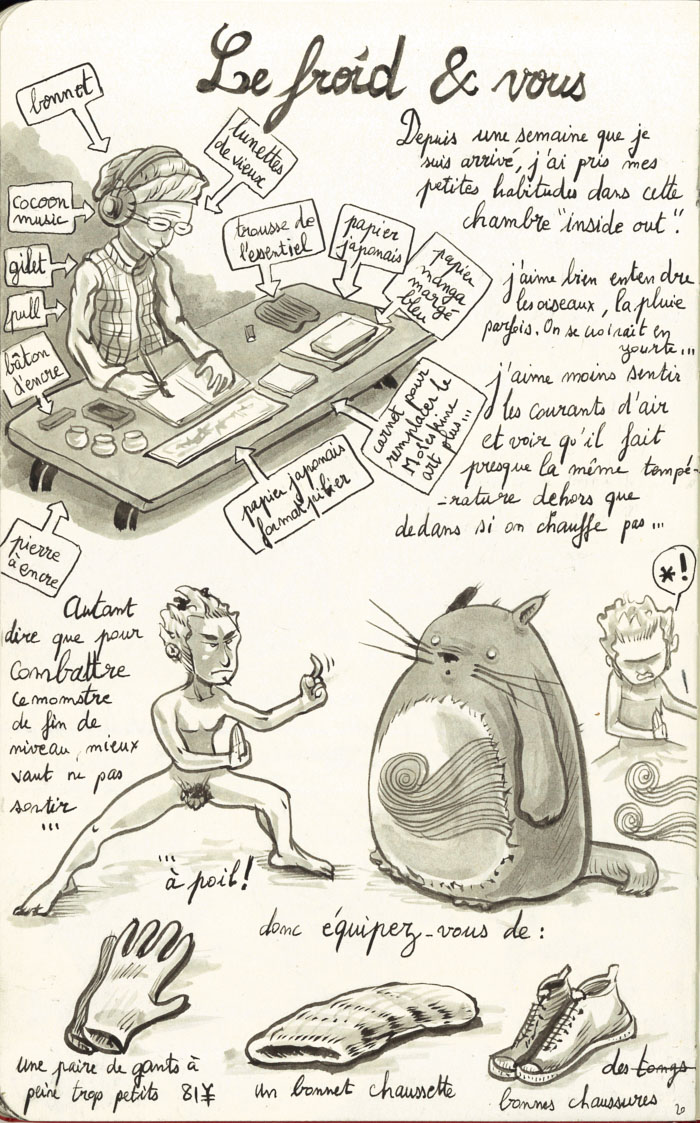 Le froid & vous
bonnet
lunettes
de vieux
cocoon
music
gilet
pull
bâton
d'encre
trousse de
l'essentiel
papier
japonais
papier
manga
margé
bleu
carnet pour
remplacer le
Moleskine
art plus...
papier japonais
format pilier
pierre
à encre
Depuis une semaine que je
suis arrivé, j'ai pris mes
petites habitudes dans cette
chambre "inside out".
j'aime bien entendre
les oiseaux, la pluie
parfois. On se croirait en
yourte...
j'aime moins sentir
les courants d'air
et voir qu'il fait
presque la même tempé-
-rature dehors que
dedans si on chauffe pas...
Autant
dire que pour
combattre
ce monstre
de fin de
niveau, mieux
vaut ne pas
sortir
...
...
à poil!
*!
donc équipez-vous de :
une paire de gants à
peine trop petits 81¥
un bonnet chaussette
des tongs
bonnes chaussures
20